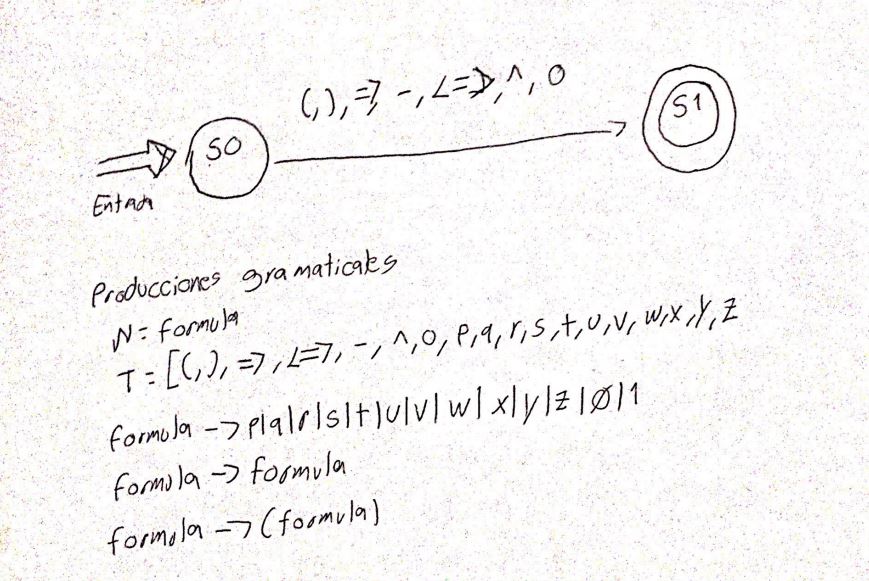 (,), =>, -, <=>, ^, o
S0
S1
Entada
Producciones gramaticales
N = formula
T = [(,), =>, <=>, -, ^, o, p, q, r, s, t, u, v, w, x, y, z
formula -> p|q|r|s|t|u|v|w|x|y|z|Ø|1
formula -> formula
formula -> (formula)